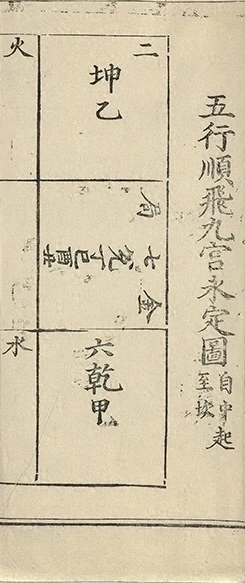 五行順飛九宮永定圖
自中起
至坎
二
坤乙
金局
七兌丁巳酉丑
六乾甲
火
水